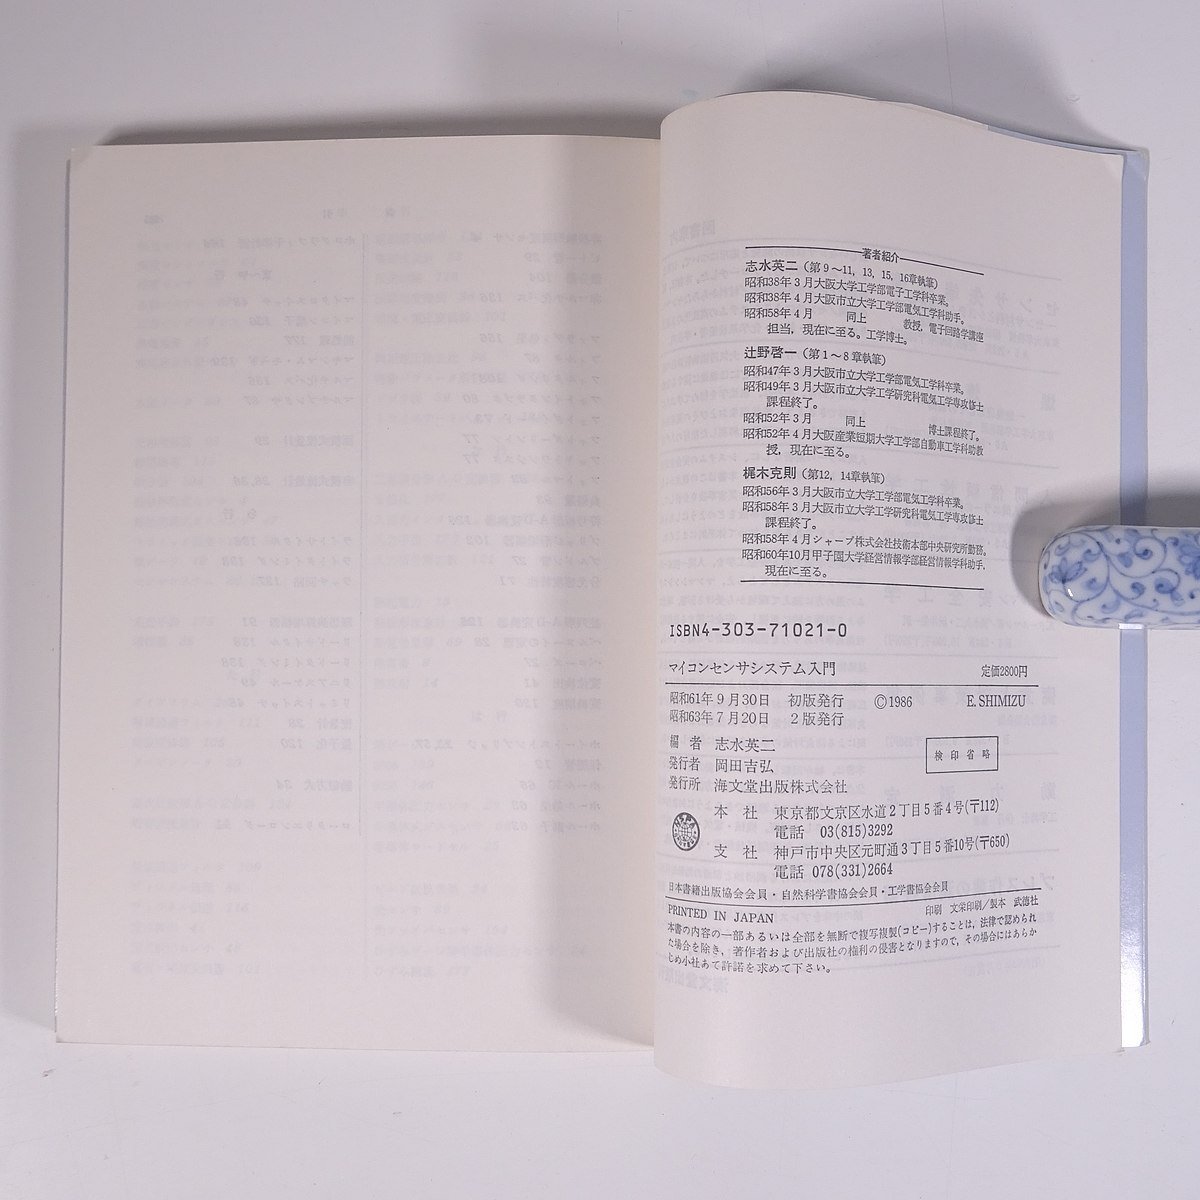 著者紹介
志水英二(第9～11, 13, 15, 16章執筆)
昭和38年3月大阪大学工学部電子工学科卒業。
昭和38年4月大阪市立大学工学部電気工学科助手。
昭和58年4月 同上 教授, 電子回路学講座
担当, 現在に至る。工学博士。
辻野啓一(第1～8章執筆)
昭和47年3月大阪市立大学工学部電気工学科卒業。
昭和49年3月大阪市立大学工学研究科電気工学専攻修士
課程終了。
昭和52年3月 同上 博士課程終了。
昭和52年4月大阪産業短期大学工学部自動車工学科助教
授, 現在に至る。
梶木克則(第12, 14章執筆)
昭和56年3月大阪市立大学工学部電気工学科卒業。
昭和58年3月大阪市立大学工学研究科電気工学専攻修士
課程終了。
昭和58年4月シャープ株式会社技術本部中央研究所勤務。
昭和60年10月甲子園大学経営情報学部経営情報学科助手,
現在に至る。
ISBN4-303-71021-0
マイコンセンサシステム入門 定価2800円
昭和61年9月30日 初版発行 ©1986 E. SHIMIZU
昭和63年7月20日 2版発行
編者 志水英二
検印省略
発行者 岡田吉弘
発行所 海文堂出版株式会社
本社 東京都文京区水道2丁目5番4号(〒112)
電話 03(815)3292
支社 神戸市中央区元町通3丁目5番10号(〒650)
電話 078(331)2664
日本書籍出版協会会員・自然科学書協会会員・工学書協会会員
PRINTED IN JAPAN 印刷 文栄印刷／製本 武徳社
本書の内容の一部あるいは全部を無断で複写複製(コピー)することは, 法律で認められ
た場合を除き, 著作者および出版社の権利の侵害となりますので, その場合にはあらか
じめ小社あて許諾を求めて下さい。